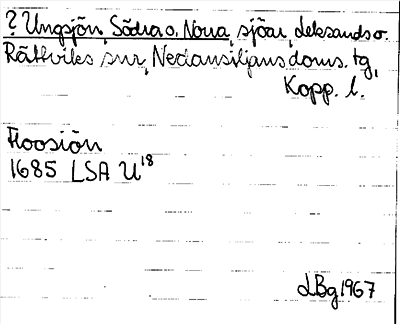 ? Ungsjön, Södra o. Norra, sjöar, Leksands o.
Rättviks snr, Nedansiljans doms. tg,
Kopp. l.
Floosiön
1685 LSA U18
LBg 1967